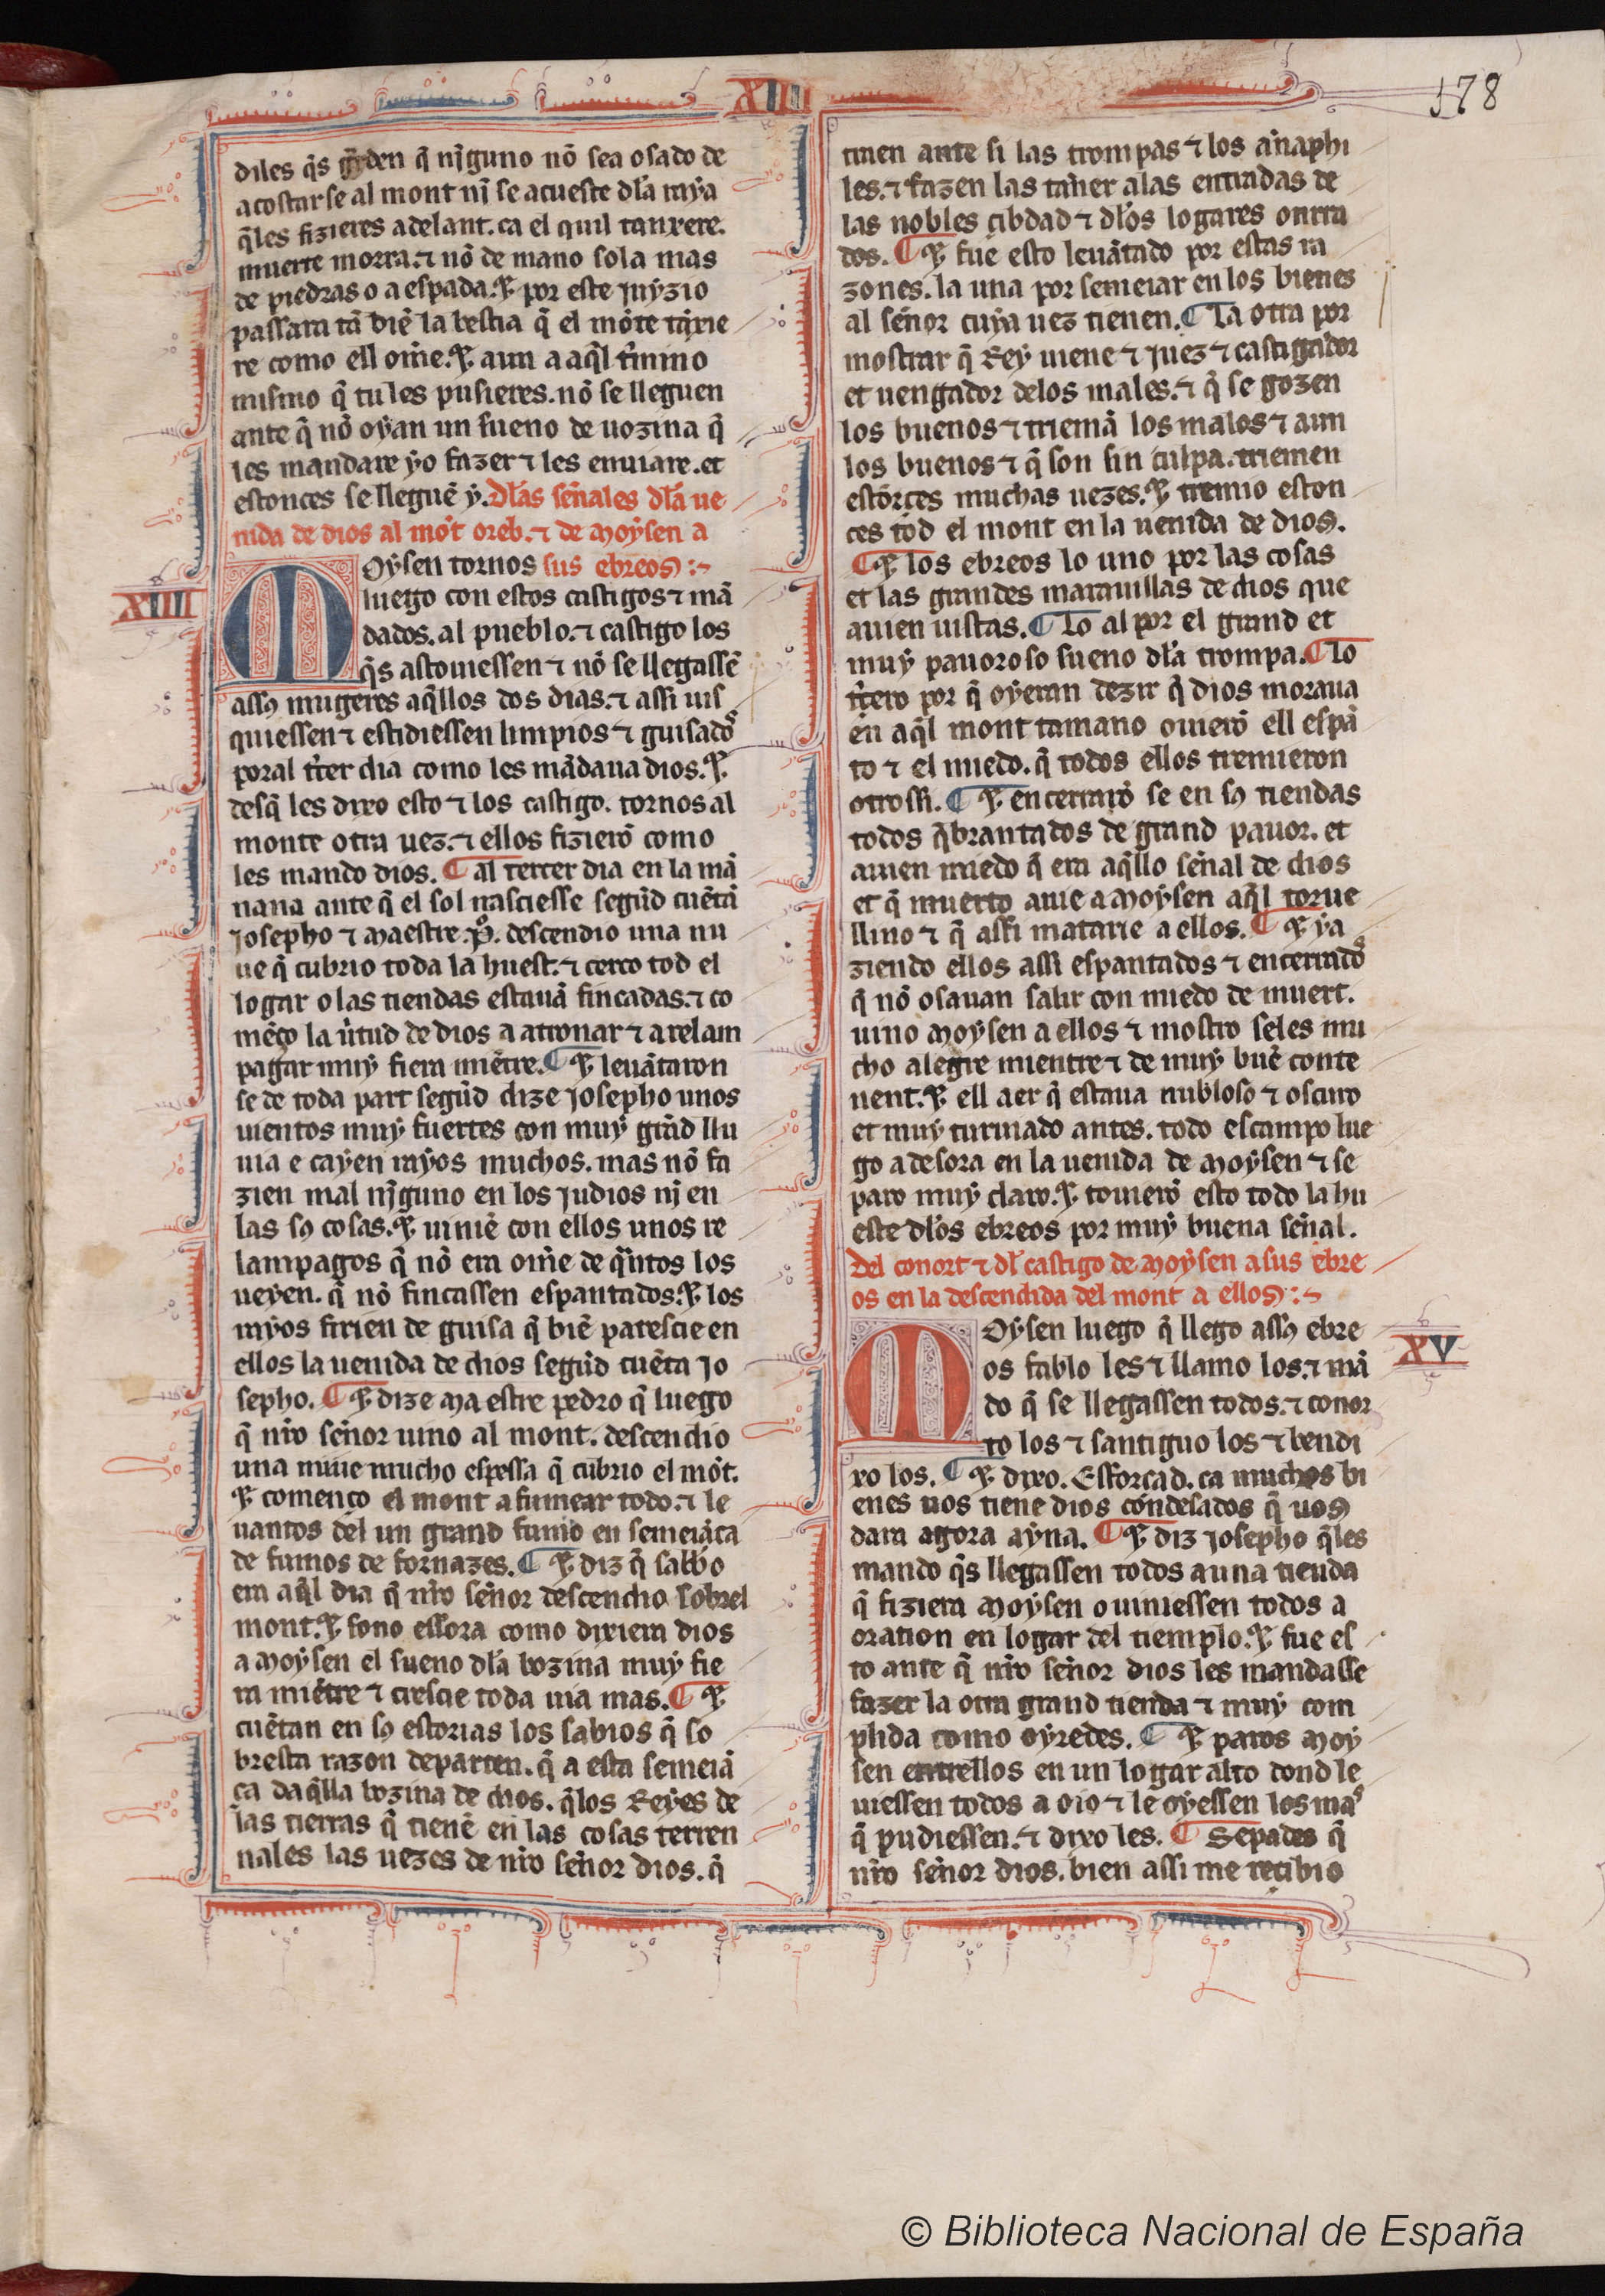 XIIII
178
diles q̃s garden q̃ nĩguno nõ sea osado de
acostar se al mont nĩ se acueste dl̃a raya
q̃les fizieres adelant. ca el quil tanxere.
muerte morra. ⁊ nõ de mano sola mas
de piedras o a espada. ⁊ por este juyzio
passara tã biẽ la bestia q̃ el mõte tãxie
re como ell om̃e. ⁊ aun a aq̃l t̃mino
mismo q̃ tu les pusieres. nõ se lleguen
ante q̃ nõ oyan un sueno de uozina q̃
les mandare yo fazer ⁊ les enuiare. et
estonces se lleguẽ y. Dl̃as señales dl̃a ue
nida de dios al mõt oreb. ⁊ de moysen a
Moysen tornos sus ebreos :~
XIIII
luego con estos castigos ⁊ mã
dados. al pueblo. ⁊ castigo los
q̃s astouiessen ⁊ nõ se llegassẽ
assꝯ mugeres aq̃llos dos dias. ⁊ assi uis
quiessen ⁊ estidiessen limpios ⁊ guisados
poral t̃cer dia como les mãdaua dios. ⁊
desq̃ les dixo esto ⁊ los castigo. tornos al
monte otra uez. ⁊ ellos fizierõ como
les mando dios. ¶ al tercer dia en la mã
nana ante q̃ el sol nasciesse segũd cuẽtã
josepho ⁊ maestre .p̃o. descendio una nu
ue q̃ cubrio toda la huest. ⁊ cerco tod el
logar o las tiendas estauã fincadas. ⁊ co
mẽço la ũtud de dios a atronar ⁊ a relam
pagar muy fiera miẽtre. ¶ ⁊ leuãtaron
se de toda part segũd dize josepho unos
uientos muy fuertes con muy grãd llu
uia e cayen rayos muchos. mas nõ fa
zien mal nĩguno en los judios nj en
las sꝯ cosas. ⁊ uiniẽ con ellos unos re
lampagos q̃ nõ era om̃e de q̃ntos los
ueyen. q̃ nõ fincassen espantados. ⁊ los
rayos firien de guisa q̃ biẽ parescie en
ellos la uenida de dios segũd cuẽta jo
sepho. ¶ ⁊ dize maestre pedro q̃ luego
q̃ nr̃o señor uino al mont. descendio
una nuue mucho espessa q̃ cubrio el mõt.
⁊ començo el mont a fumear todo. ⁊ le
uantos del un grand fumo en semeiãça
de fumos de fornazes. ¶ ⁊ diz q̃ sabbo
era aq̃l dia q̃ nr̃o señor descendio sobrel
mont. ⁊ sono essora como dixiera dios
a moysen el sueno dl̃a bozina muy fie
ra miẽtre ⁊ crescie toda uia mas. ¶ ⁊
cuẽtan en sꝯ estorias los sabios q̃ so
bresta razon departen. q̃ a esta semeiã
ça daq̃lla bozina de dios. q̃los Reyes de
las tierras q̃ tienẽ en las cosas terren
nales las uezes de nr̃o señor dios. q̃
traen ante si las trompas ⁊ los añaphi
les. ⁊ fazen las tañer alas entradas de
las nobles çibdad ⁊ dl̃os logares onrra
dos. ¶ ⁊ fue esto leuãtado por estas ra
zones. la una por semeiar en los bienes
al señor cuya uez tienen. ¶ La otra por
mostrar q̃ Rey uiene ⁊ juez ⁊ castigador
et uengador delos males. ⁊ q̃ se gozen
los buenos ⁊ triemã los malos ⁊ aun
los buenos ⁊ q̃ son sin culpa. triemen
estõces muchas uezes. ⁊ tremio eston
ces tod el mont en la uenida de dios.
¶ ⁊ los ebreos lo uno por las cosas
et las grandes marauillas de dios que
auien uistas. ¶ Lo al por el grand et
muy pauoroso sueno dl̃a trompa. ¶ Lo
t̃cero por q̃ oyeran dezir q̃ dios moraua
en aq̃l mont tamano ouierõ ell espã
to ⁊ el miedo. q̃ todos ellos tremieron
otrossi. ¶ ⁊ encerrarõ se en sꝯ tiendas
todos q̃brantados de grand pauor. et
auien miedo q̃ era aq̃llo señal de dios
et q̃ muerto auie a moysen aq̃l torue
llino ⁊ q̃ assi matarie a ellos. ¶ ⁊ ya
ziendo ellos assi espantados ⁊ encerrados
q̃ nõ osauan salir con miedo de muert.
uino moysen a ellos ⁊ mostro seles mu
cho alegre mientre ⁊ de muy buẽ conte
nent. ⁊ ell aer q̃ estaua nubloso ⁊ oscuro
et muy turuiado antes. todo escampo lue
go adesora en la uenida de moysen ⁊ se
paro muy claro. ⁊ touierõ esto todo la hu
este dl̃os ebreos por muy buena señal.
Del conort ⁊ dl̃ castigo de moysen a sus ebre
os en la descendida del mont a ellos :~
Moysen luego q̃ llego assꝯ ebre
XV
os fablo les ⁊ llamo los. ⁊ mã
do q̃ se llegassen todos. ⁊ conor
to los ⁊ santiguo los ⁊ bendi
xo los. ¶ ⁊ dixo. Esforcad. ca muchos bi
enes uos tiene dios condesados q̃ uos
dara agora ayna. ¶ ⁊ diz josepho q̃les
mando q̃s llegassen todos a una tienda
q̃ fiziera moysen o uiniessen todos a
oration en logar del tiemplo. ⁊ fue es
to ante q̃ nr̃o señor dios les mandasse
fazer la otra grand tienda ⁊ muy com
plida como oyredes. ¶ ⁊ paros moy
sen entrellos en un logar alto dond le
uiessen todos a oio ⁊ le oyessen los mas
q̃ pudiessen. ⁊ dixo les. ¶ Sepades q̃
nr̃o señor dios. bien assi me recibio
© Biblioteca Nacional de España